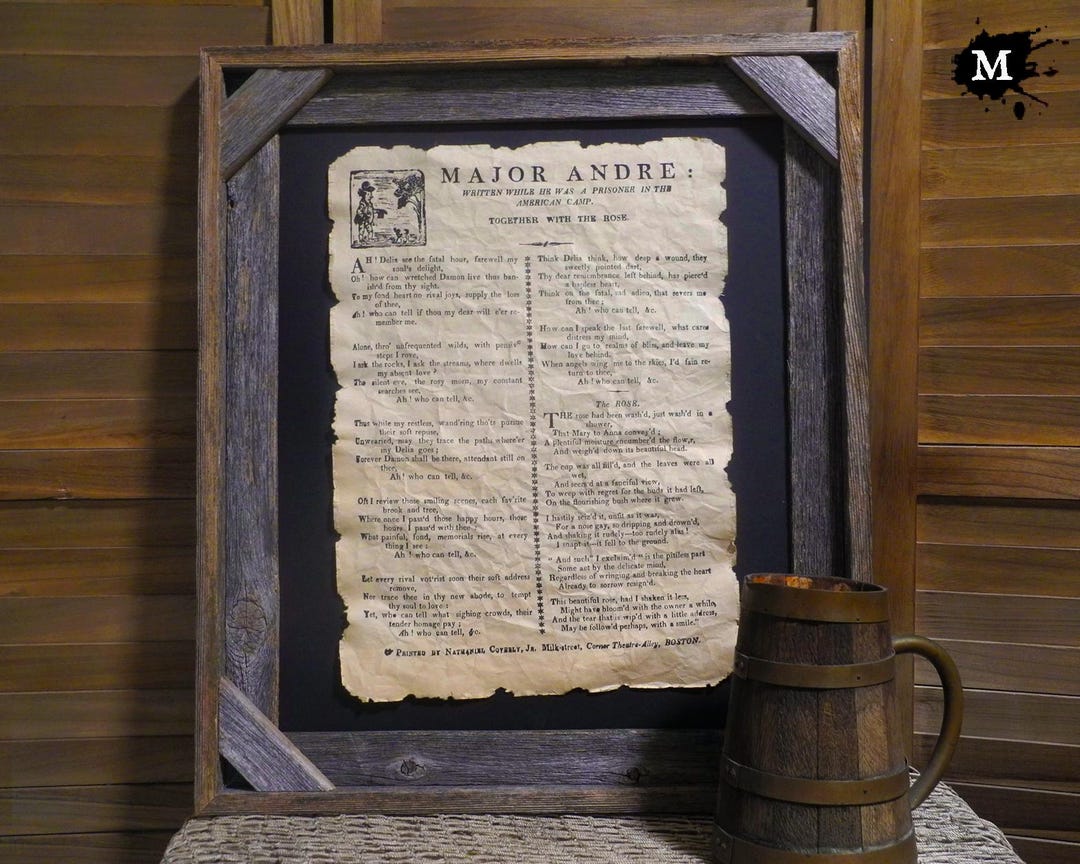 M
MAJOR ANDRE:
WRITTEN WHILE HE WAS A PRISONER IN THE
AMERICAN CAMP.
TOGETHER WITH THE ROSE.
AH! Delia see the fatal hour, farewell my
soul's delight,
Oh! how can wretched Damon live thus ban-
ish'd from thy sight.
To my fond heart no rival joys, supply the loss
of thee,
Ah! who can tell if thou my dear will e'er re-
member me.
Alone, thro' unfrequented wilds, with pensive
steps I rove,
I ask the rocks, I ask the streams, where dwells
my absent love?
The silent eve, the rosy morn, my constant
searches see,
Ah! who can tell, &c.
Thus while my restless, wand'ring tho'ts pursue
their soft repose,
Unwearied, may they trace the paths where'er
my Delia goes;
Forever Damon shall be there, attendant still on
thee,
Ah! who can tell, &c.
Oft I review those smiling scenes, each fav'rite
brook and tree,
Where once I pass'd those happy hours, those
hours I pass'd with thee;
What painful, fond, memorials rise, at every
thing I see;
Ah! who can tell, &c.
Let every rival vot'rist soon their soft address
remove,
Nor trace thee in thy new abode, to tempt
thy soul to love:
Yet, who can tell what sighing crowds, their
tender homage pay;
Ah! who can tell, &c.
Think Delia think, how deep a wound, they
sweetly pointed dart,
Thy dear remembrance left behind, has pierc'd
a hapless heart,
Think on the fatal, sad adieu, that severs me
from thee;
Ah! who can tell, &c.
How can I speak the last farewell, what cares
distress my mind,
How can I go to realms of bliss, and leave my
love behind.
When angels wing me to the skies, I'd fain re-
turn to thee,
Ah! who can tell, &c.
The ROSE.
THE rose had been wash'd, just wash'd in a
shower,
That Mary to Anna convey'd;
A plentiful moisture encumber'd the flow,r,
And weigh'd down its beautiful head.
The cup was all fill'd, and the leaves were all
wet,
And seem'd at a fanciful view,
To weep with regret for the buds it had left,
On the flourishing bush where it grew.
I hastily seiz'd it, unfit as it was,
For a nose gay, so dripping and drown'd,
And shaking it rudely—too rudely alas!
I snapt it—it fell to the ground.
" And such" I exclaim'd "is the pitiless part
Some act by the delicate mind,
Regardless of wringing and breaking the heart
Already to sorrow resign'd.
This beautiful rose, had I shaken it less,
Might have bloom'd with the owner a while,
And the tear that is wip'd with a little address,
May be follow'd perhaps, with a smile."
☛ PRINTED BY NATHANIEL COVERLY, JR. Milk-street, Corner Theatre-Alley, BOSTON.